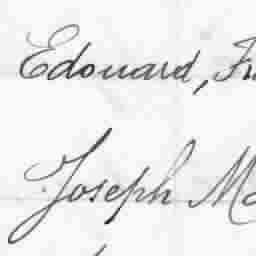 Edouard,
Joseph